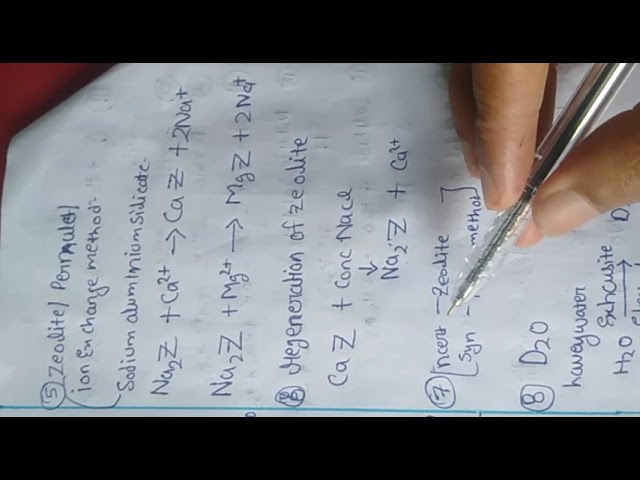 ⑤ Zeolite/ Permutit/
ion Exchange method
Sodium aluminium silicate.
Na₂Z + Ca²⁺ → CaZ + 2Na⁺
Na₂Z + Mg²⁺ → MgZ + 2Na⁺
⑥ regeneration of zeolite
CaZ + Conc Nacl
↓
Na₂Z + Ca²⁺
⑦ ncert - Zeolite
Syn - method
⑧ D₂O
haveywater
H₂O